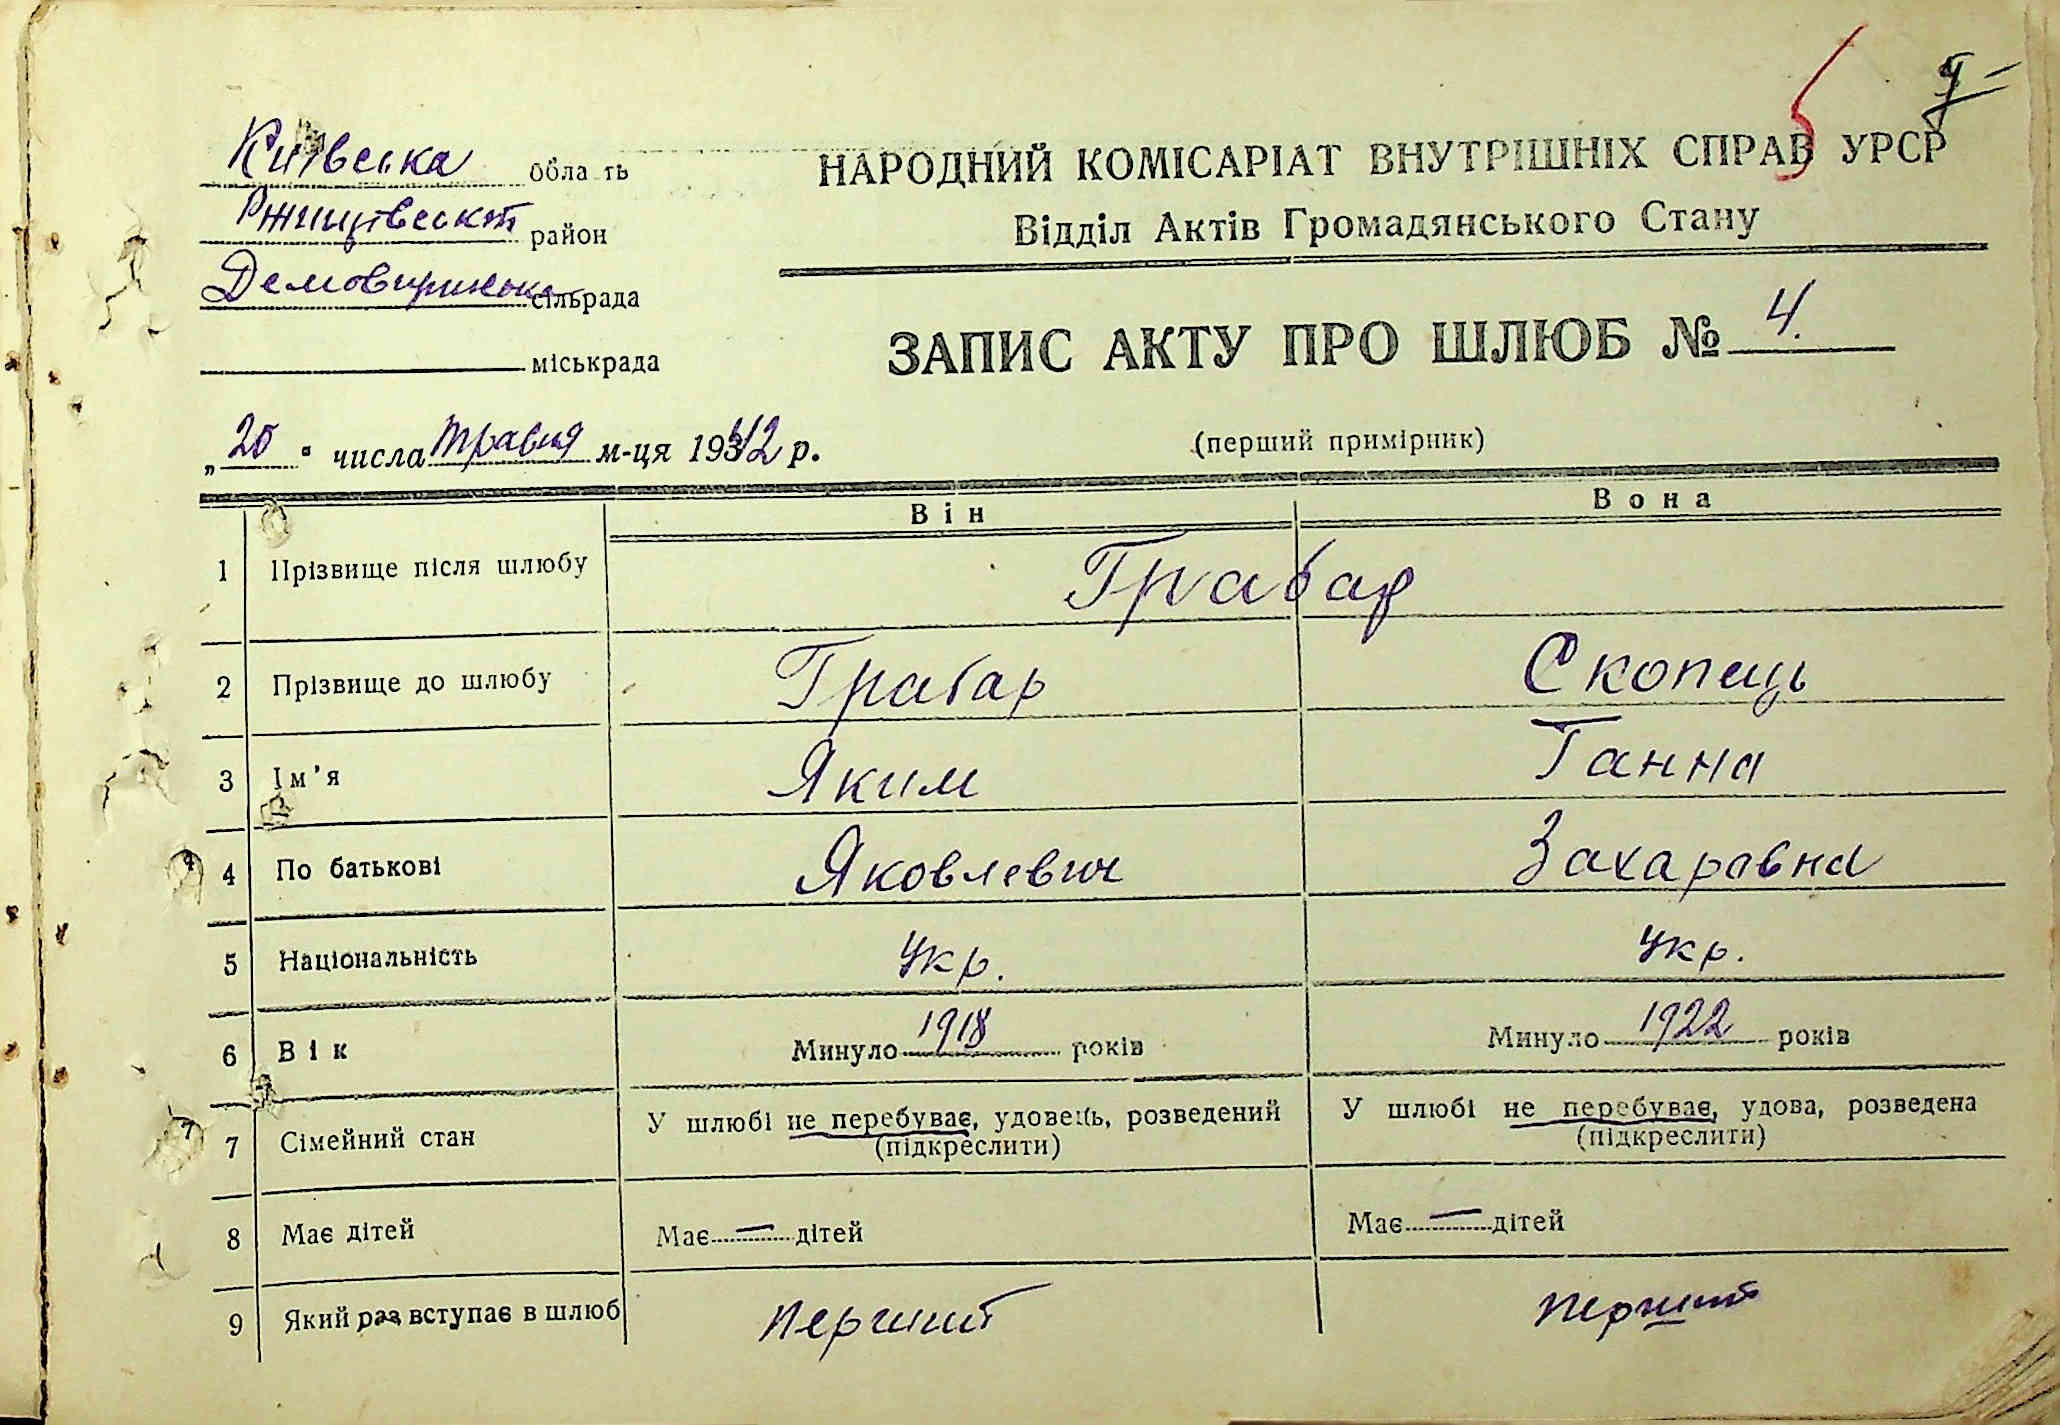 5 4
Київська область
Ржищівський район
Демовщинська сільрада
міськрада
НАРОДНИЙ КОМІСАРІАТ ВНУТРІШНІХ СПРАВ УРСР
Відділ Актів Громадянського Стану
ЗАПИС АКТУ ПРО ШЛЮБ № 4.
„20" числа травня м-ця 1942 р.
(перший примірник)
Він Вона
1 Прізвище після шлюбу Грабар
2 Прізвище до шлюбу Грабар Скопець
3 Ім'я Яким Ганна
4 По батькові Яковлевич Захаровна
5 Національність Укр. Укр.
6 Вік Минуло 1918 років Минуло 1922 років
7 Сімейний стан У шлюбі не перебуває, удовець, розведений У шлюбі не перебуває, удова, розведена
(підкреслити) (підкреслити)
8 Має дітей Має — дітей Має — дітей
9 Який раз вступає в шлюб перший перший